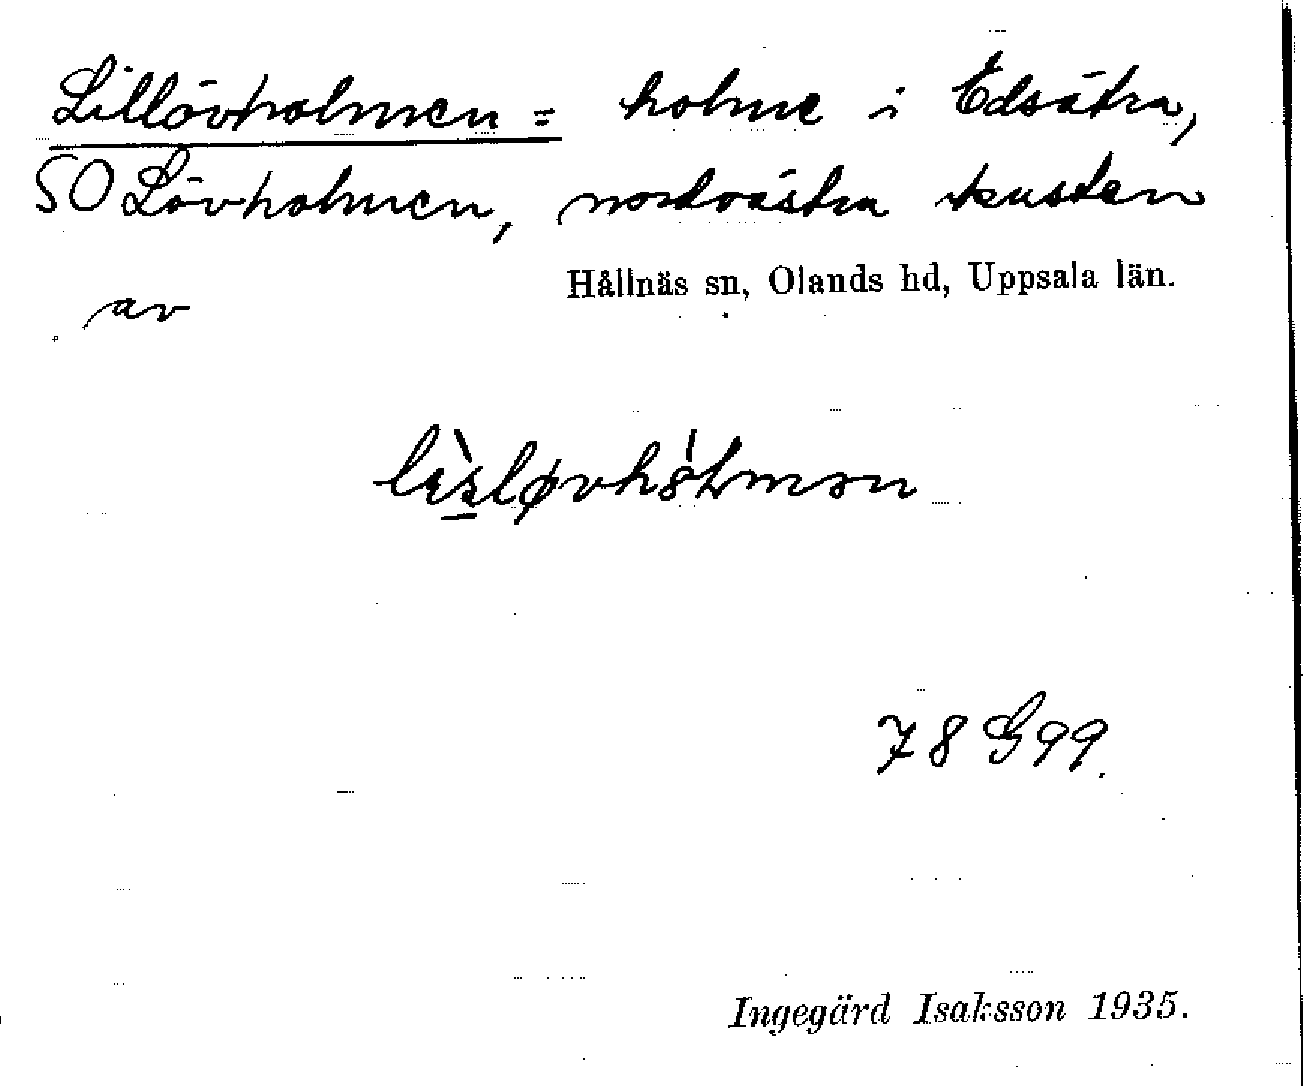 Lillövholmen = holme i Edsätra,
SO Lövholmen, nordvästra kusten
Hållnäs sn, Olands hd, Uppsala län.
av
78 G 99.
Ingegärd Isaksson 1935.